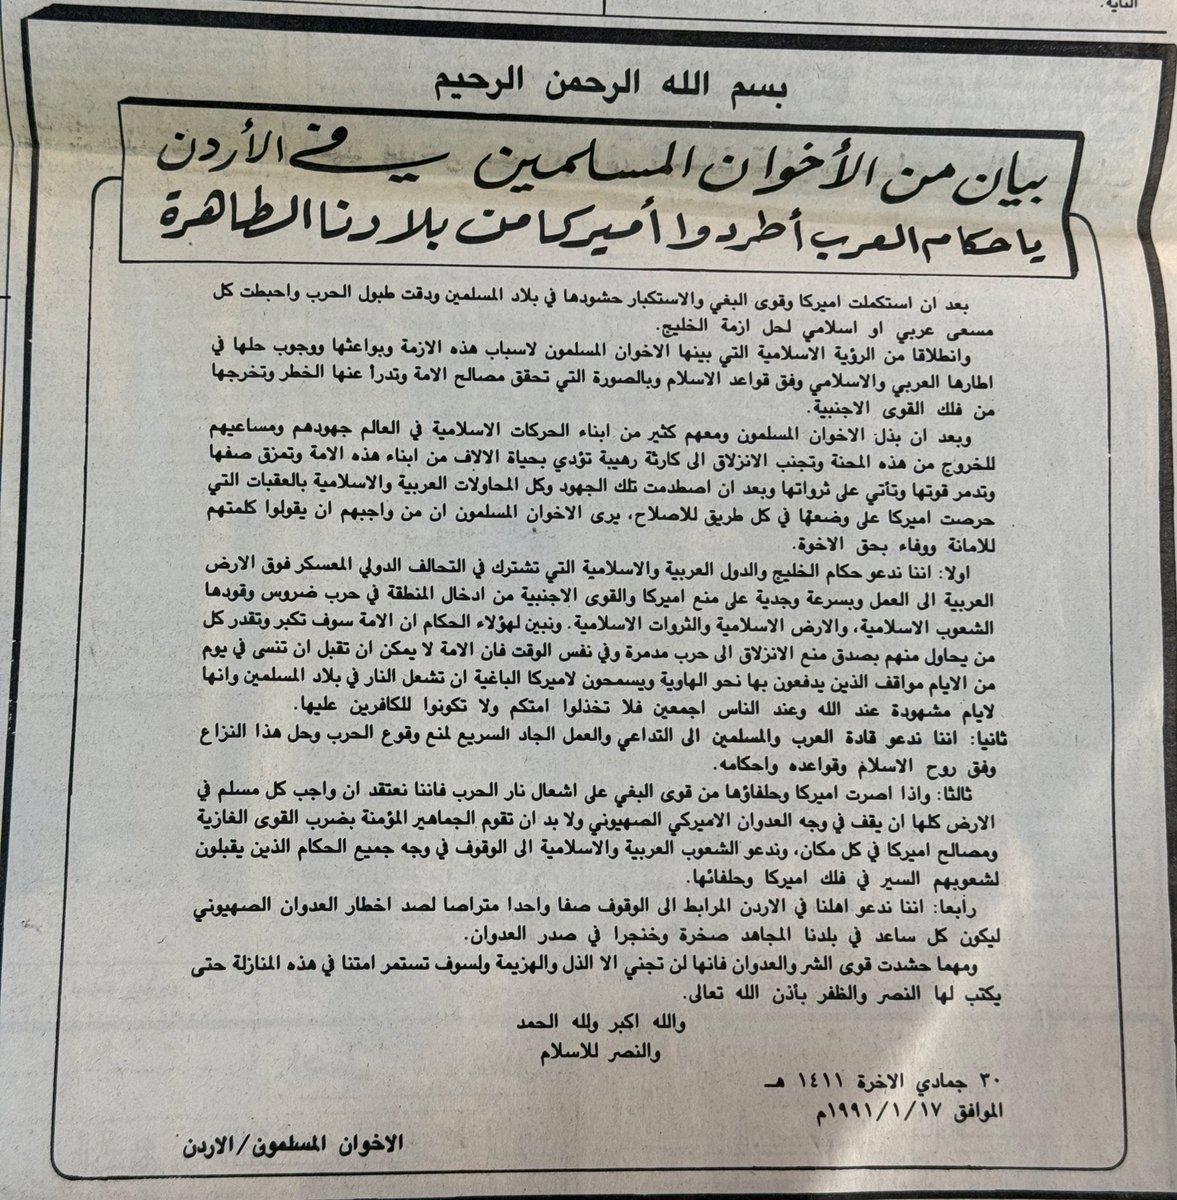 الثانية.
بسم الله الرحمن الرحيم
بيان من الأخوان المسلمين في الأردن
يا حكام العرب أطردوا أميركا من بلادنا الطاهرة
بعد ان استكملت اميركا وقوى البغي والاستكبار حشودها في بلاد المسلمين ودقت طبول الحرب واحبطت كل
مسعى عربي او اسلامي لحل ازمة الخليج.
وانطلاقا من الرؤية الاسلامية التي بينها الاخوان المسلمون لاسباب هذه الازمة وبواعثها ووجوب حلها في
اطارها العربي والاسلامي وفق قواعد الاسلام وبالصورة التي تحقق مصالح الامة وتدرأ عنها الخطر وتخرجها
من فلك القوى الاجنبية.
وبعد ان بذل الاخوان المسلمون ومعهم كثير من ابناء الحركات الاسلامية في العالم جهودهم ومساعيهم
للخروج من هذه المحنة وتجنب الانزلاق الى كارثة رهيبة تؤدي بحياة الالاف من ابناء هذه الامة وتمزق صفها
وتدمر قوتها وتأتي على ثرواتها وبعد ان اصطدمت تلك الجهود وكل المحاولات العربية والاسلامية بالعقبات التي
حرصت اميركا على وضعها في كل طريق للاصلاح، يرى الاخوان المسلمون ان من واجبهم ان يقولوا كلمتهم
للامانة ووفاء بحق الاخوة.
اولا: اننا ندعو حكام الخليج والدول العربية والاسلامية التي تشترك في التحالف الدولي المعسكر فوق الارض
العربية الى العمل وبسرعة وجدية على منع اميركا والقوى الاجنبية من ادخال المنطقة في حرب ضروس وقودها
الشعوب الاسلامية، والارض الاسلامية والثروات الاسلامية. ونبين لهؤلاء الحكام ان الامة سوف تكبر وتقدر كل
من يحاول منهم بصدق منع الانزلاق الى حرب مدمرة وفي نفس الوقت فان الامة لا يمكن ان تقبل ان تنسى في يوم
من الايام مواقف الذين يدفعون بها نحو الهاوية ويسمحون لاميركا الباغية ان تشعل النار في بلاد المسلمين وانها
لايام مشهودة عند الله وعند الناس اجمعين فلا تخذلوا امتكم ولا تكونوا للكافرين عليها.
ثانيا: اننا ندعو قادة العرب والمسلمين الى التداعي والعمل الجاد السريع لمنع وقوع الحرب وحل هذا النزاع
وفق روح الاسلام وقواعده واحكامه.
ثالثا: واذا اصرت اميركا وحلفاؤها من قوى البغي على اشعال نار الحرب فاننا نعتقد ان واجب كل مسلم في
الارض كلها ان يقف في وجه العدوان الاميركي الصهيوني ولا بد ان تقوم الجماهير المؤمنة بضرب القوى الغازية
ومصالح اميركا في كل مكان، وندعو الشعوب العربية والاسلامية الى الوقوف في وجه جميع الحكام الذين يقبلون
لشعوبهم السير في فلك اميركا وحلفائها.
رابعا: اننا ندعو اهلنا في الاردن المرابط الى الوقوف صفا واحدا متراصا لصد اخطار العدوان الصهيوني
ليكون كل ساعد في بلدنا المجاهد صخرة وخنجرا في صدر العدوان.
ومهما حشدت قوى الشر والعدوان فانها لن تجني الا الذل والهزيمة ولسوف تستمر امتنا في هذه المنازلة حتى
يكتب لها النصر والظفر بأذن الله تعالى.
والله اكبر ولله الحمد
والنصر للاسلام
٣٠ جمادي الاخرة ١٤١١ هـ
الموافق ١٩٩١/١/١٧م
الاخوان المسلمون/الاردن